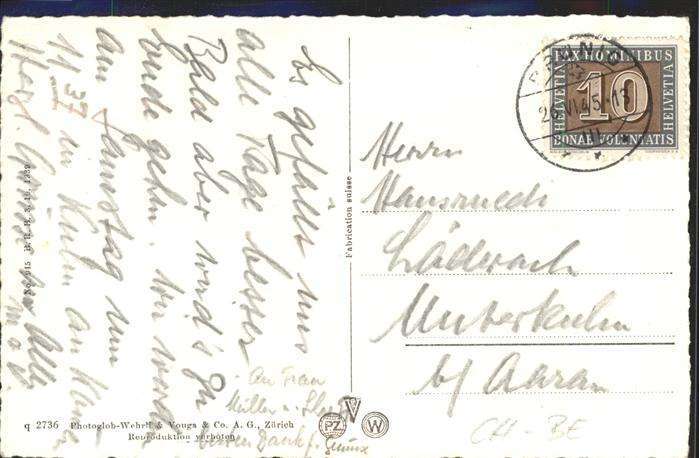 Es gefällt uns
alle Tage besser
Bald aber wird's zu
Ende gehn. Wir werden
am Samstag um
11 37 in Kulm an
Herzl. Alle
An Frau
Müller u.
besten Dank f.
No. 915
Fabrication suisse
PAX HOMINIBUS
HELVETIA
10
HELVETIA
BONAE VOLUNTATIS
VI.45
Herrn
Hansruedi
Unterkulm
b/ Aarau
CH-BE
q 2736 Photoglob-Wehrli & Vouga & Co. A. G., Zürich
Reproduktion verboten
V
PZ
W